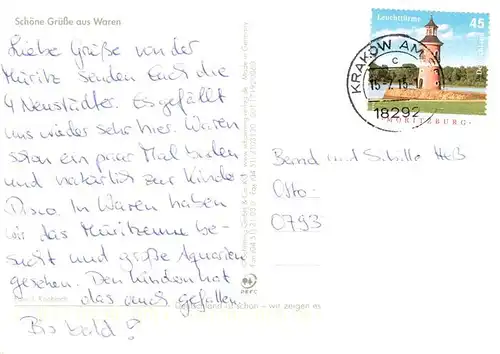 Schöne Grüße aus Waren
Liebe Grüße von der
Müritz senden Euch die
4 Neustädter. Es gefällt
uns wieder sehr hier. Waren
schon ein paar Mal baden
und natürlich zur Kinder
Disco. In Waren haben
wir das Müritzeum be-
sucht und große Aquarien
gesehen. Den Kindern hat
das auch gefallen.
Bis bald!
Leuchttürme
45
Deutschland
MORITZBURG
KRAKOW AM
C
15
18292
Bernd und Sibille Heß
Otto-
0793
PEFC
Deutschland ist schön – wir zeigen es